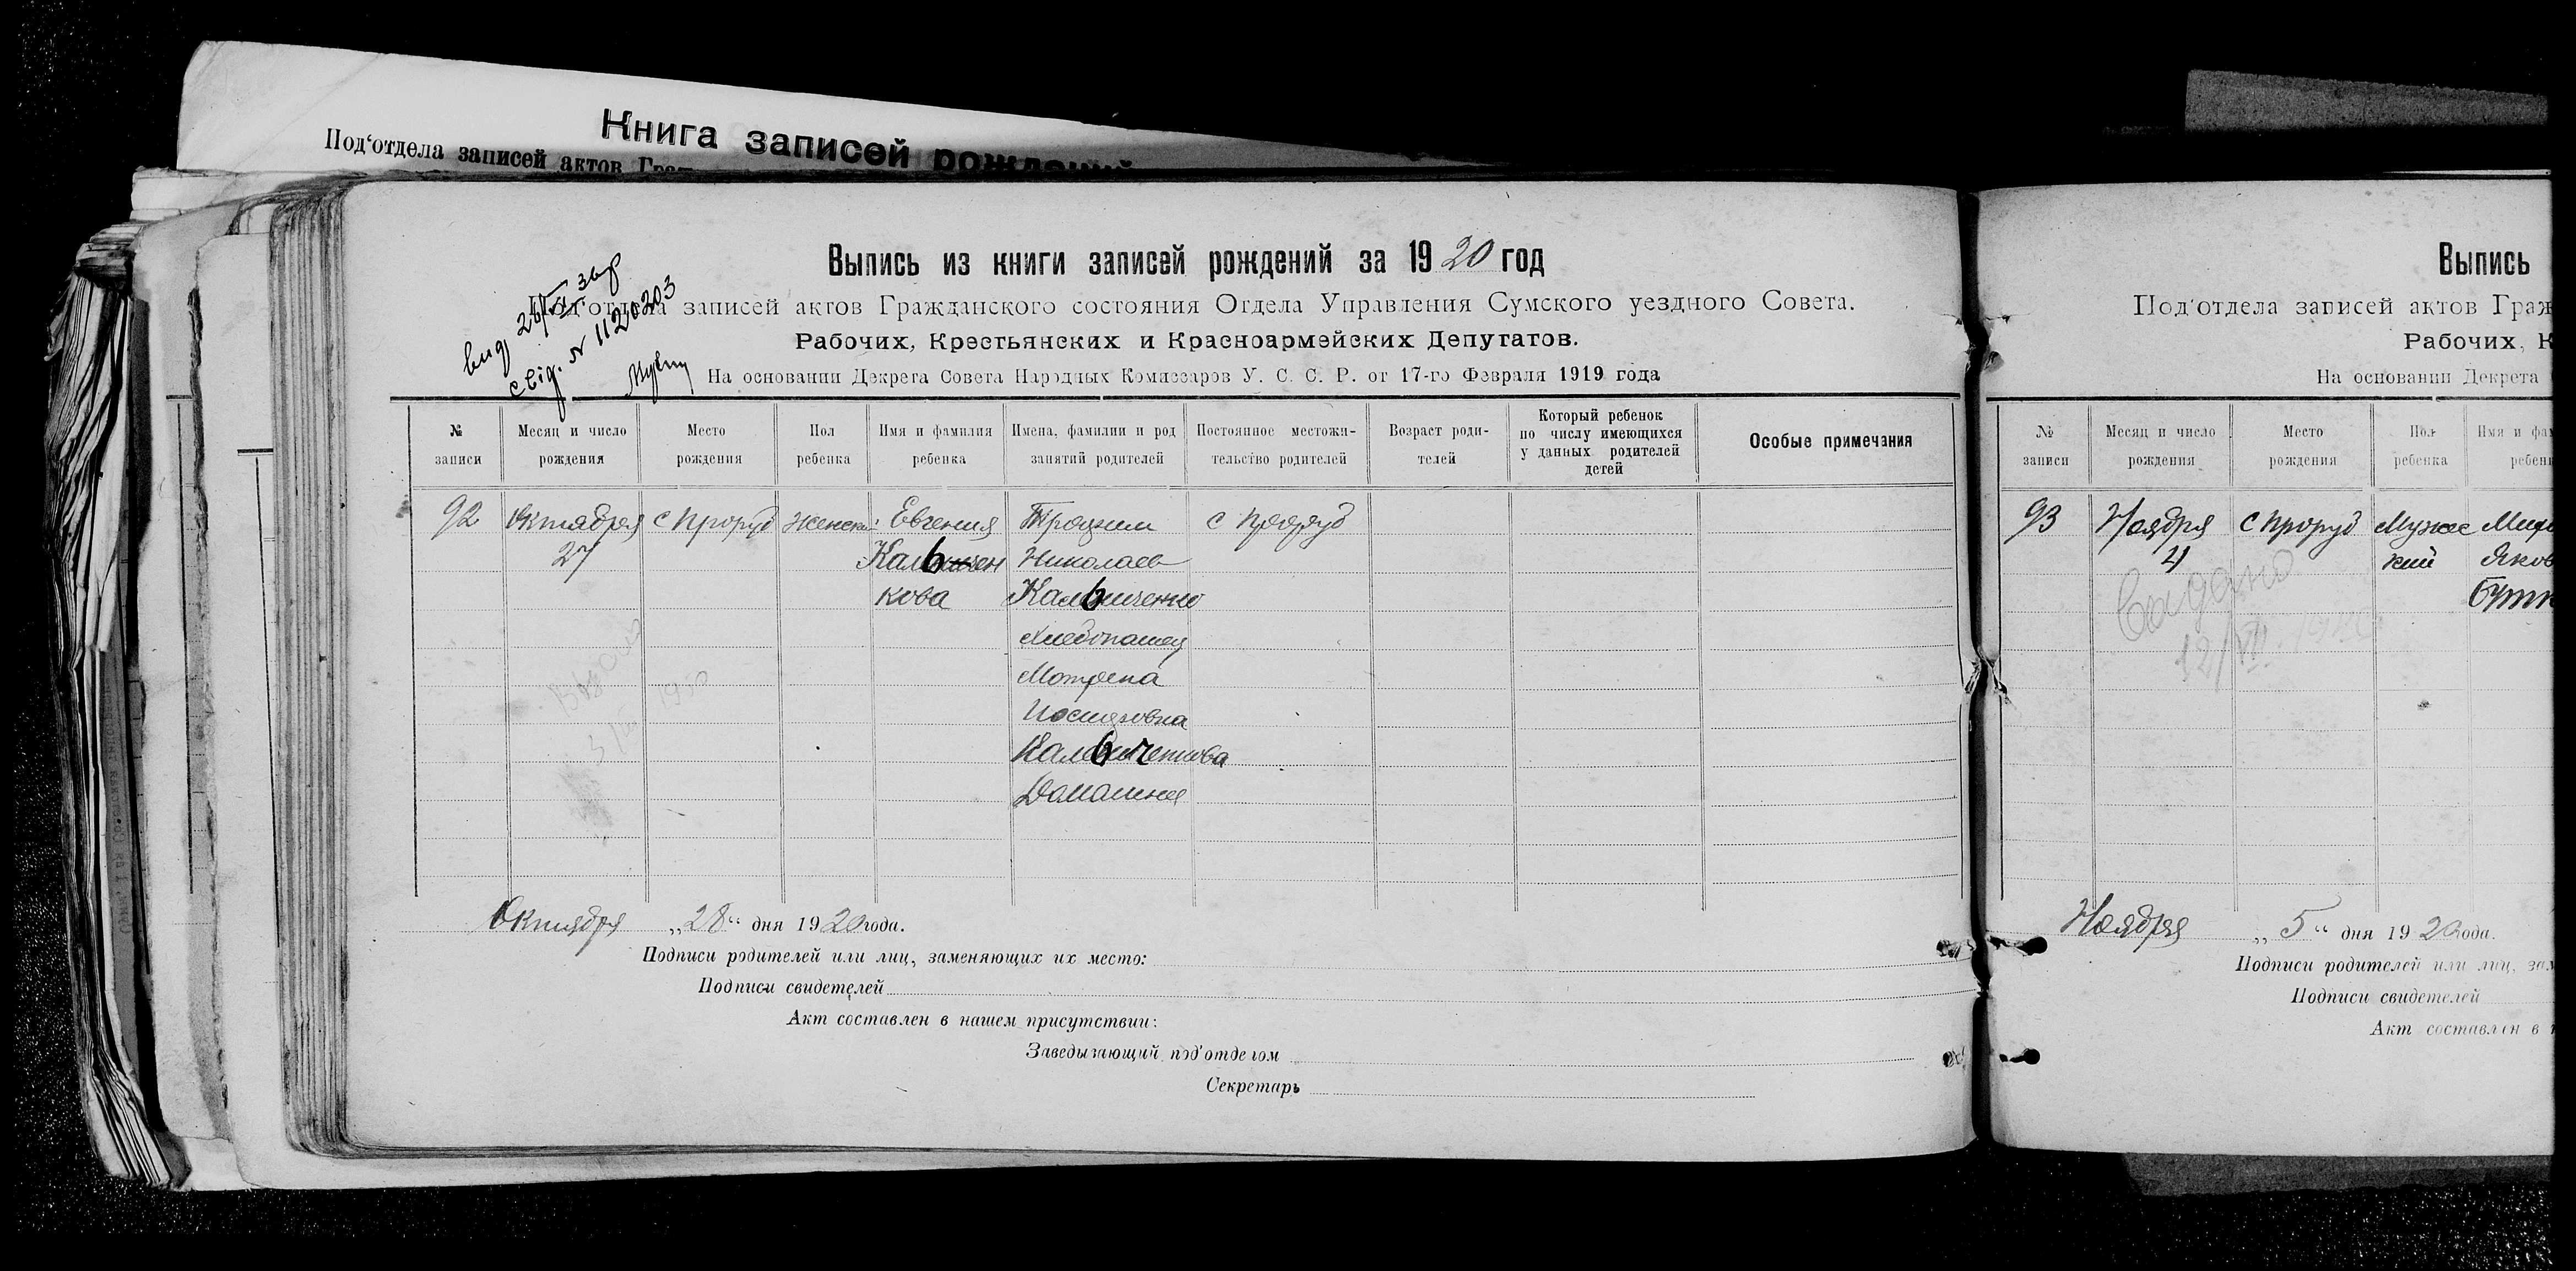 Книга записей рождений
Под'отдела записей актов Граж
вид 28/IX 30 р
свід. № 1120203
Выпись из книги записей рождений за 1920 год
Под'отдела записей актов Гражданского состояния Отдела Управления Сумского уездного Совета.
Рабочих, Крестьянских и Красноармейских Депутатов.
На основании Декрета Совета Народных Комиссаров У. С. С. Р. от 17-го Февраля 1919 года
№ записи
Месяц и число рождения
Место рождения
Пол ребенка
Имя и фамилия ребенка
Имена, фамилии и род занятий родителей
Постоянное местожительство родителей
Возраст родителей
Который ребенок по числу имеющихся у данных родителей детей
Особые примечания
92 Октября с Проруб Женски Евгения Трофим с Проруб
27 Кальчен Николаев
кова Кальниченко
Хлебопашец
Мотрена
Калениченкова
Домашняя
Октября „28“ дня 1920 года.
Подписи родителей или лиц, заменяющих их место:
Подписи свидетелей
Акт составлен в нашем присутствии:
Заведывающий под'отделом
Секретарь
Выпись
Под'отдела записей актов Граж
Рабочих, К
На основании Декрета
№ записи
Месяц и число рождения
Место рождения
Пол ребенка
Имя и фам
ребен
93 Ноября с Проруб Мужс
4 кий Яков
Видано
12/VII
Ноября „5“ дня 1920 года.
Подписи родителей или лиц, зам
Подписи свидетелей
Акт составлен в н